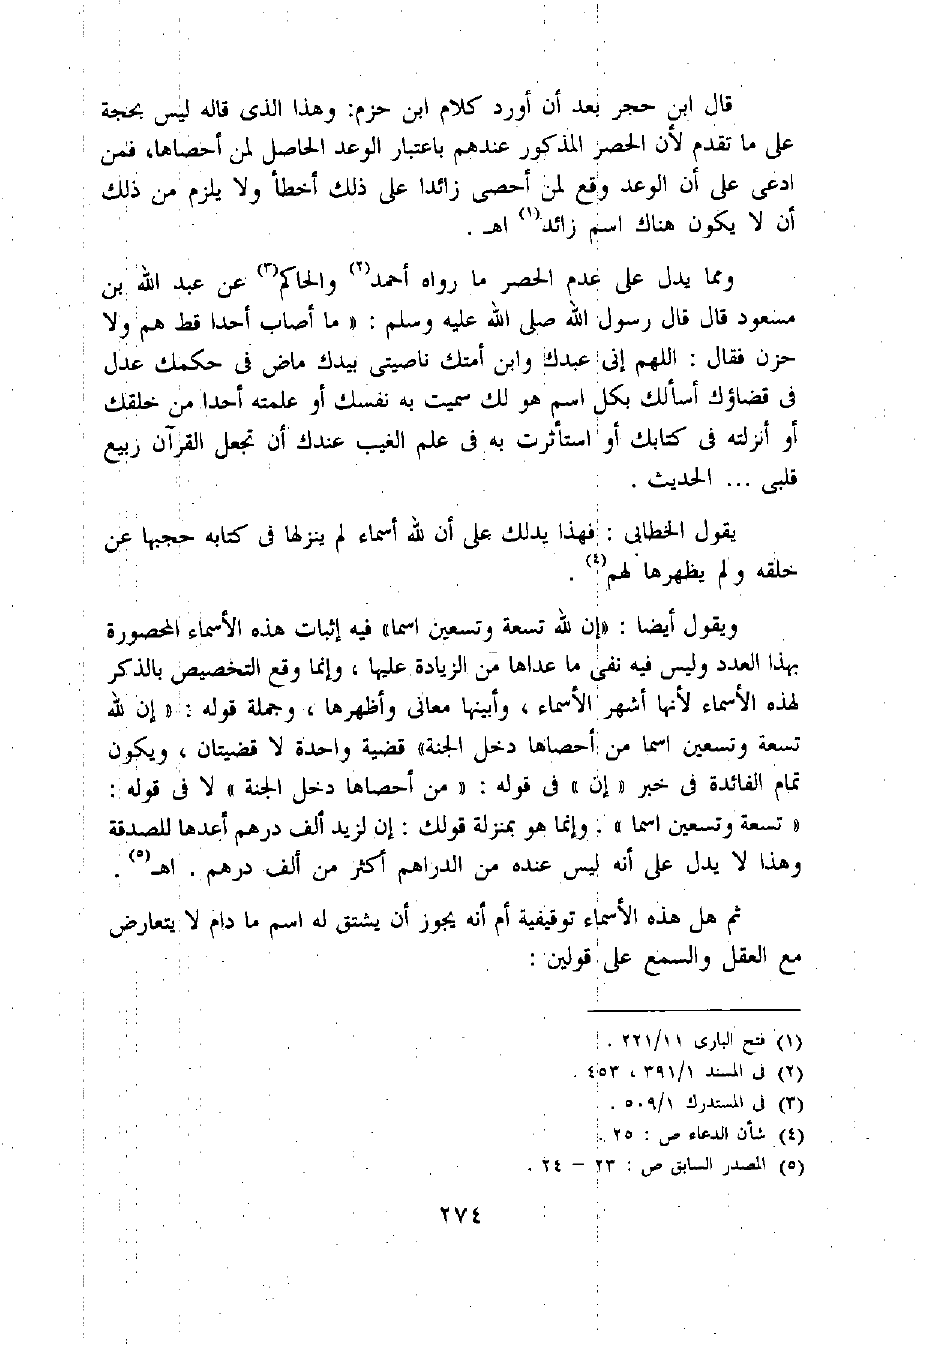 قال ابن حجر بعد أن أورد كلام ابن حزم: وهذا الذى قاله ليس بحجة
على ما تقدم لأن الحصر المذكور عندهم باعتبار الوعد الحاصل لمن أحصاها، فمن
ادعى على أن الوعد وقع لمن أحصى زائدا على ذلك أخطأ ولا يلزم من ذلك
أن لا يكون هناك اسم زائد(١) اهـ .
ومما يدل على عدم الحصر ما رواه أحمد(٢) والحاكم(٣) عن عبد الله بن
مسعود قال قال رسول الله صلى الله عليه وسلم : « ما أصاب أحدا قط هم ولا
حزن فقال : اللهم إنى عبدك وابن أمتك ناصيتى بيدك ماض فى حكمك عدل
فى قضاؤك أسألك بكل اسم هو لك سميت به نفسك أو علمته أحدا من خلقك
أو أنزلته فى كتابك أو استأثرت به فى علم الغيب عندك أن تجعل القرآن ربيع
قلبى ... الحديث .
يقول الخطابى : فهذا يدلك على أن لله أسماء لم ينزلها فى كتابه حجبها عن
خلقه ولم يظهرها لهم(٤) .
ويقول أيضا : «إن لله تسعة وتسعين اسما» فيه إثبات هذه الأسماء المحصورة
بهذا العدد وليس فيه نفى ما عداها من الزيادة عليها ، وإنما وقع التخصيص بالذكر
لهذه الأسماء لأنها أشهر الأسماء ، وأبينها معانى وأظهرها ، وجملة قوله : « إن لله
تسعة وتسعين اسما من أحصاها دخل الجنة» قضية واحدة لا قضيتان ، ويكون
تمام الفائدة فى خبر « إن » فى قوله : « من أحصاها دخل الجنة » لا فى قوله :
« تسعة وتسعين اسما » . وإنما هو بمنزلة قولك : إن لزيد ألف درهم أعدها للصدقة
وهذا لا يدل على أنه ليس عنده من الدراهم أكثر من ألف درهم . اهـ(٥) .
ثم هل هذه الأسماء توقيفية أم أنه يجوز أن يشتق له اسم ما دام لا يتعارض
مع العقل والسمع على قولين :
(١) فتح البارى ٢٢١/١١ .
(٢) فى المسند ٣٩١/١ ، ٤٥٣ .
(٣) فى المستدرك ٥٠٩/١ .
(٤) شأن الدعاء ص : ٢٥ .
(٥) المصدر السابق ص : ٢٣ – ٢٤ .
٢٧٤